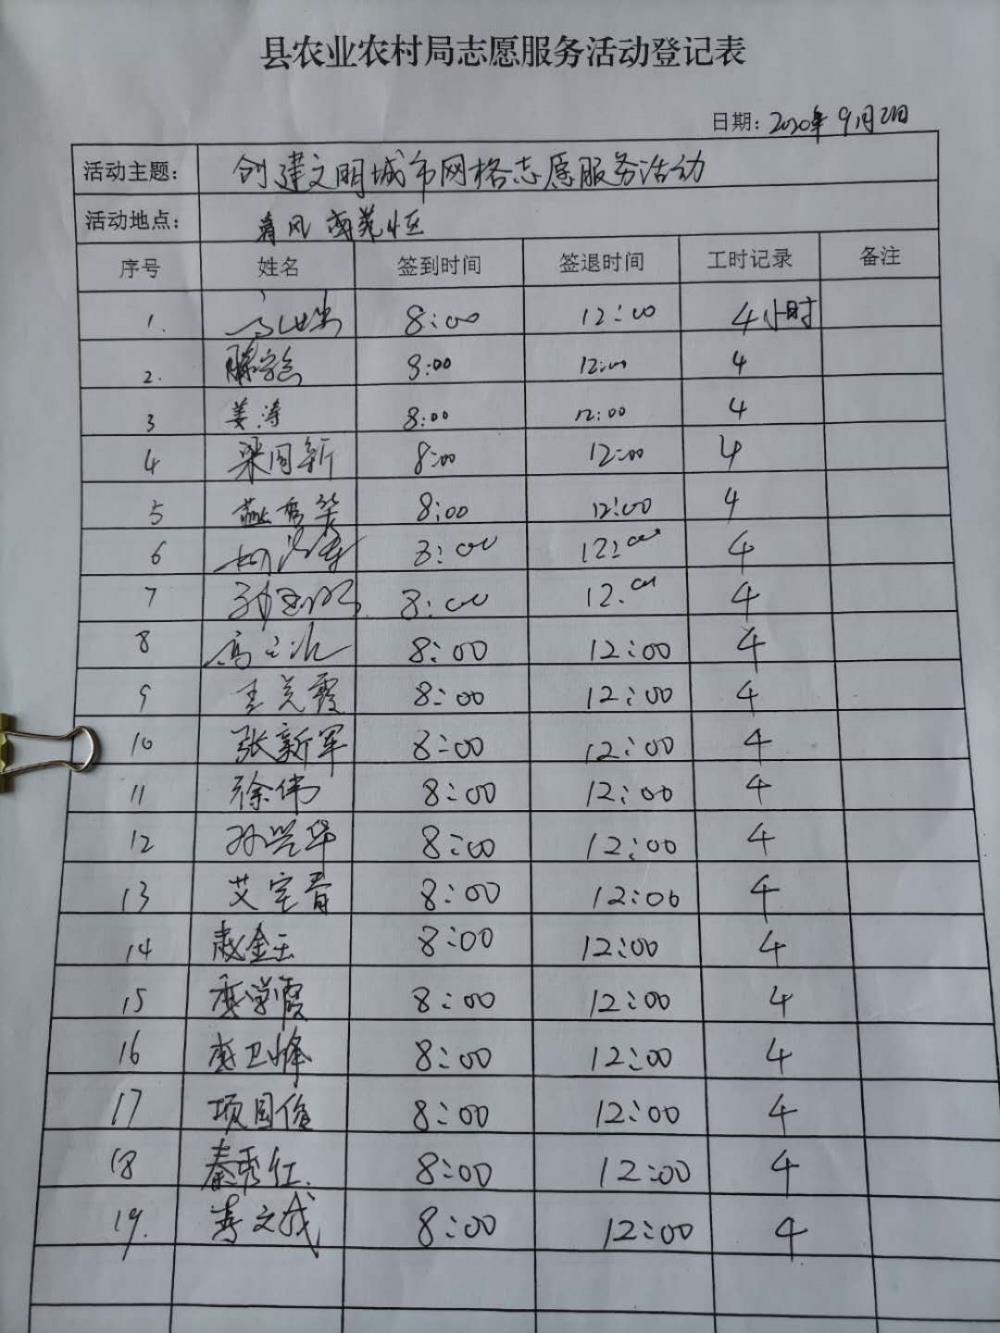 县农业农村局志愿服务活动登记表
日期: 2020年9月21日
活动主题: 创建文明城市网格志愿服务活动
活动地点: 春风
序号 姓名 签到时间 签退时间 工时记录 备注
1. 8:00 12:00 4小时
2. 8:00 12:00 4
3 姜涛 8:00 12:00 4
4 梁国新 8:00 12:00 4
5 8:00 12:00 4
6 8:00 12:00 4
7 8:00 12:00 4
8 8:00 12:00 4
9 王光霞 8:00 12:00 4
10 张新军 8:00 12:00 4
11 徐伟 8:00 12:00 4
12 孙兴华 8:00 12:00 4
13 艾宝青 8:00 12:00 4
14 赵金玉 8:00 12:00 4
15 8:00 12:00 4
16 8:00 12:00 4
17 项国俊 8:00 12:00 4
18 秦秀红. 8:00 12:00 4
19. 8:00 12:00 4